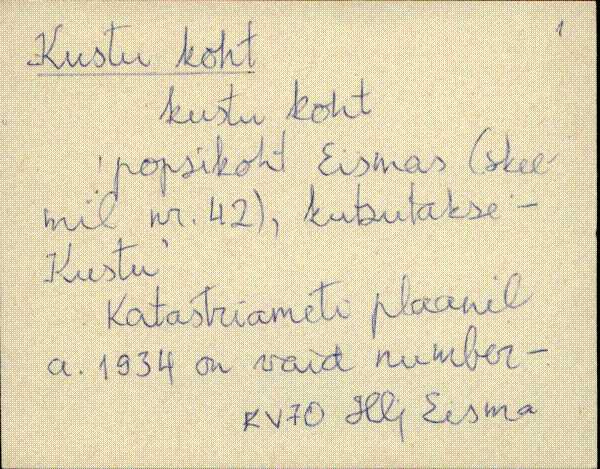 1
Kustu koht
kustu koht
'popsikoht Eismas (skee-
mil nr. 42), kutsutakse -
Kustu'
Katastriameti plaanil
a. 1934 on vaid number -
KV70 Hlj Eisma